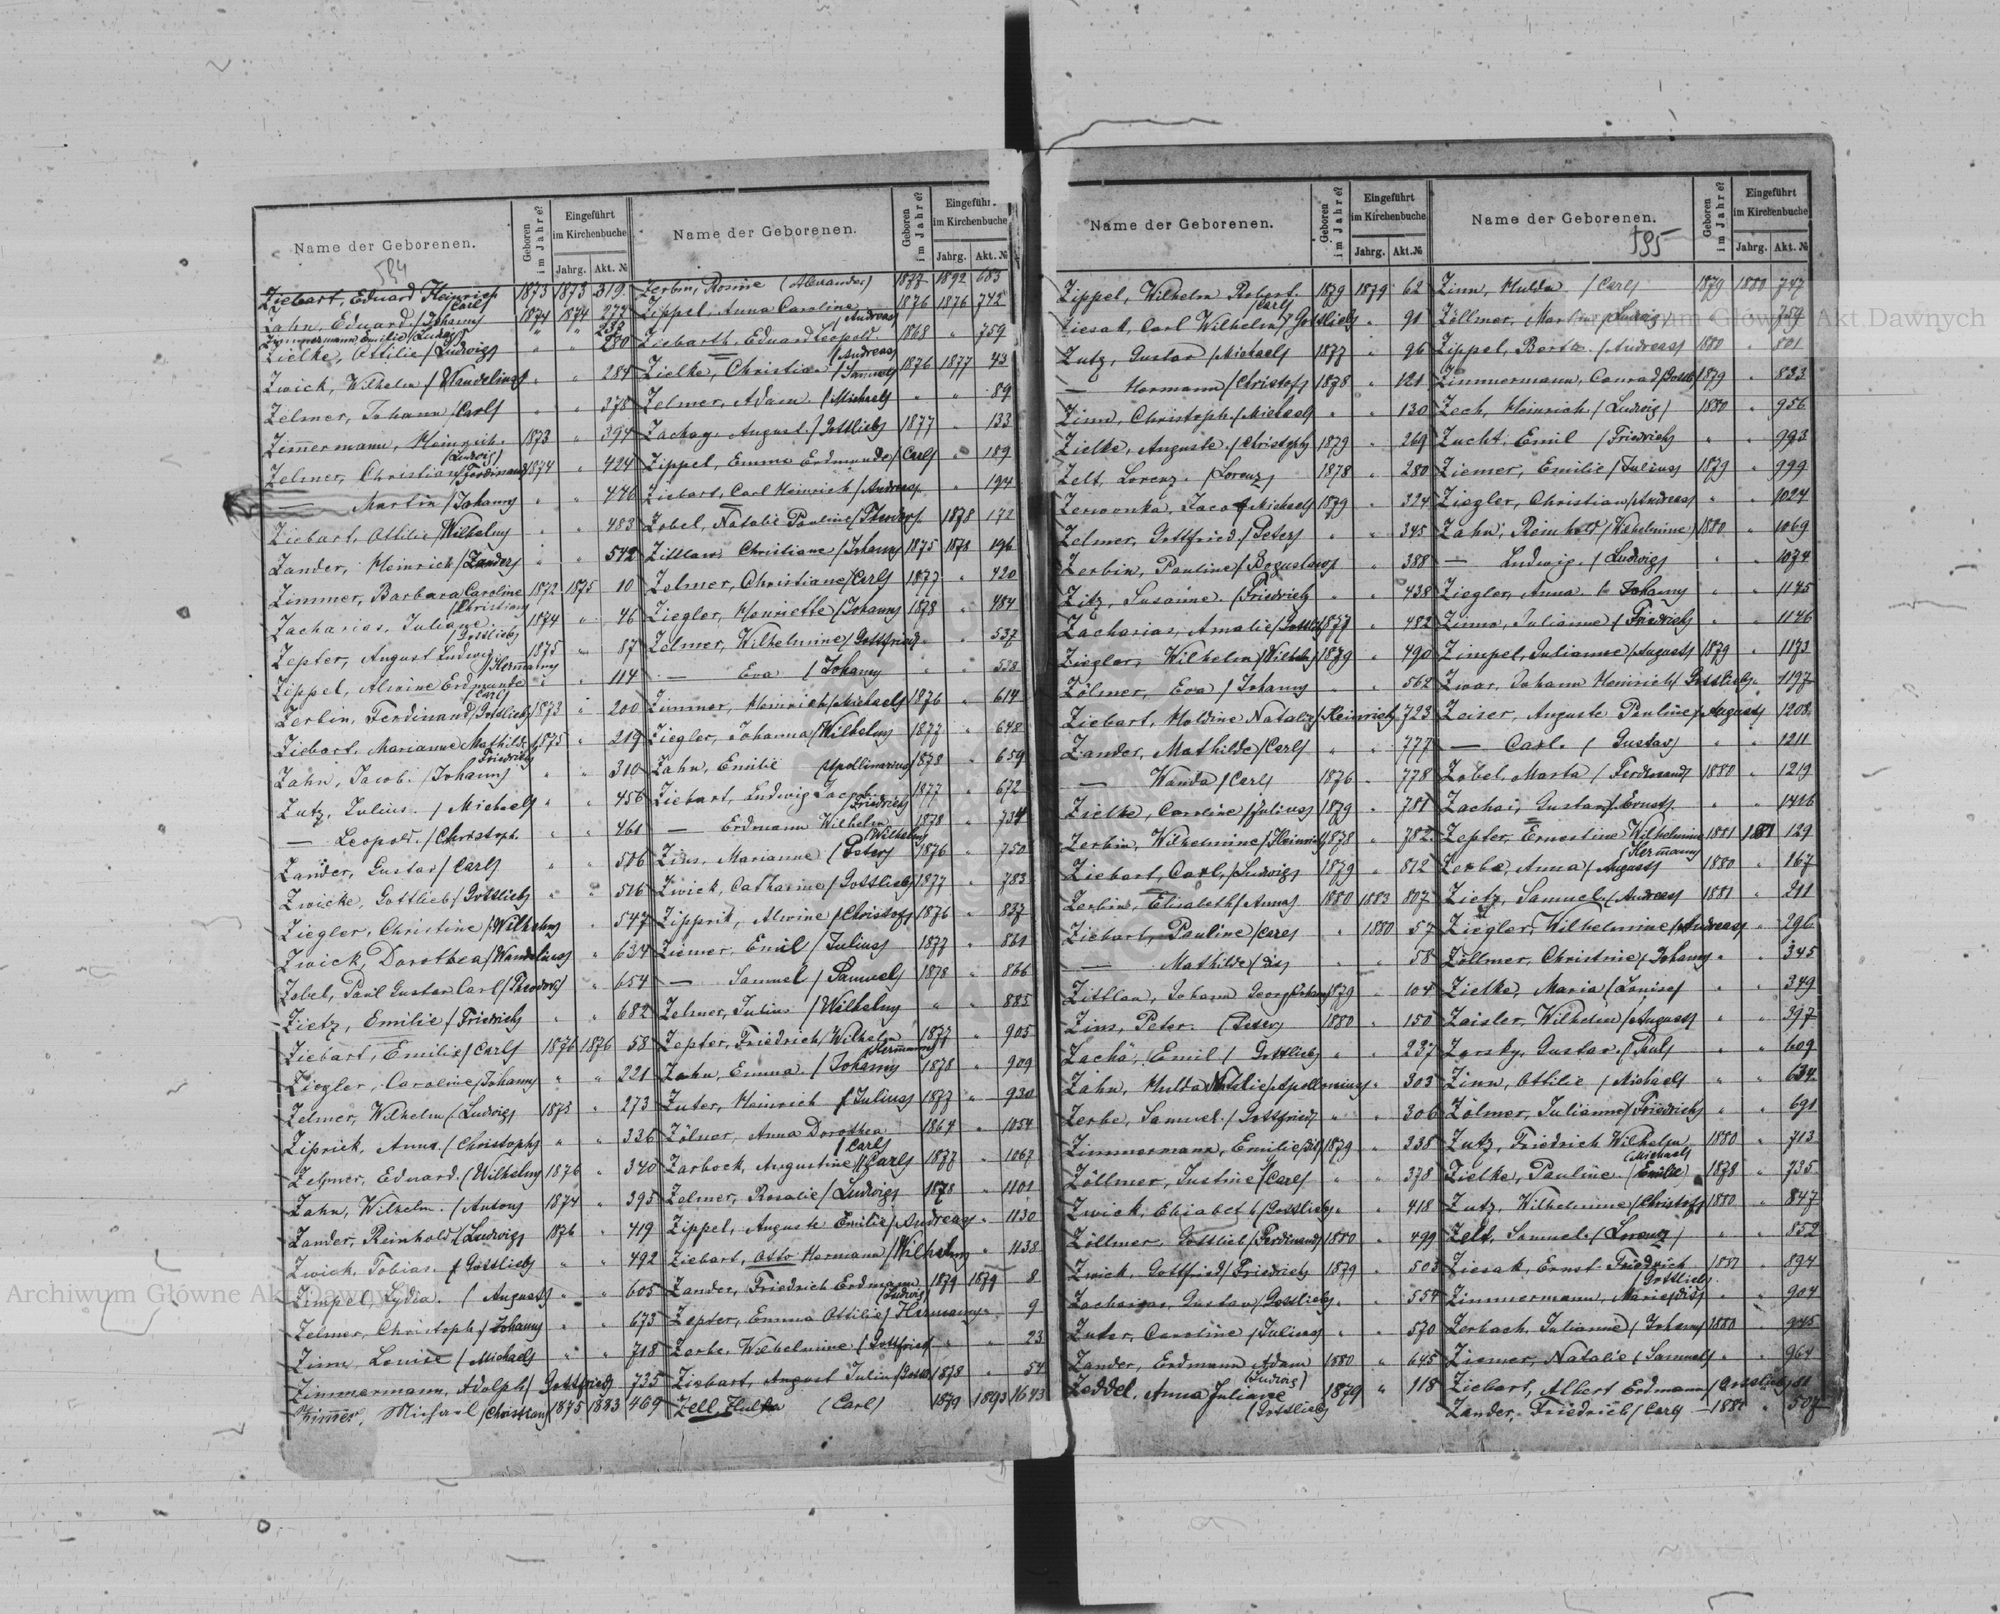 Name der Geborenen.
Geboren im Jahre?
Eingeführt im Kirchenbuche
Jahrg. Akt. №
594
Ziebart, Eduard Heinrich 1873 1873 319
(Carl)
Zahn, Eduard (Johann) 1874 1874 277
Zimmermann Emilie (Ludwig) " "
Zielke, Ottilie (Ludwig) " " 280
Zwick, Wilhelm (Wandelin) " " 284
Zelmer, Johann (Carl) " " 378
Zimmermann, Heinrich 1873 " 394
(Ludwig)
Zelmer, Christian (Ferdinand) 1874 " 424
— Martin (Johann) " " 476
Ziebart, Ottilie (Wilhelm) " " 483
Zander, Heinrich (Zander) " " 542
Zimmer, Barbara Caroline 1872 1875 10
(Christian)
Zacharias, Juliane 1874 " 46
(Gottlieb)
Zepter, August Ludwig 1875 " 87
(Hermann)
Zippel, Alwine Erdmunde " " 114
(Carl)
Zerbin, Ferdinand (Gottlieb) 1873 " 200
Ziebart, Marianne Mathilde 1875 " 219
(Friedrich)
Zahn, Jacob (Johann) " " 310
Zutz, Julius (Michael) " " 456
— Leopold (Christoph) " " 461
Zander, Gustav (Carl) " " 506
Zwicke, Gottlieb (Gottlieb) " " 516
Ziegler, Christine (Wilhelm) " " 547
Zwick, Dorothea (Wandelin) " 634
Zobel, Paul Gustav Carl (Theodor) " 654
Zietz, Emilie (Friedrich) " " 682
Ziebart, Emilie (Carl) 1876 1876 58
Ziegler, Caroline (Johann) " " 221
Zelmer, Wilhelm (Ludwig) 1875 " 273
Ziprick, Anna (Christoph) " " 336
Zelmer, Eduard (Wilhelm) 1876 " 340
Zahn, Wilhelm (Anton) 1874 " 395
Zander, Reinhold (Ludwig) 1876 " 419
Zwick, Tobias (Gottlieb) " " 492
Zimpel, Lydia (August) " " 605
Zelmer, Christoph (Johann) " " 673
Zinn, Louise (Michael) " " 718
Zimmermann, Adolph (Gottfried) 735
Zimmer, Michael (Christian) 1875 1883 469
Name der Geborenen.
Geboren im Jahre?
Eingeführt im Kirchenbuche
Jahrg. Akt. №
Zerbin, Rosine (Alexander) 1877 1892 683
Zippel, Anna Caroline 1876 1876 742
(Andreas)
Ziebarth, Eduard Leopold 1868 " 759
(Andreas)
Zielke, Christian (Samuel) 1876 1877 43
Zelmer, Adam (Michael) " " 89
Zachay, August (Gottlieb) 1877 " 133
Zippel, Emma Erdmunde (Carl) " 189
Ziebart, Carl Heinrich (Andreas) " 194
Zobel, Natalie Pauline (Theodor) 1878 172
Zittlau, Christiane (Johann) 1875 1878 196
Zelmer, Christiane (Carl) 1877 " 420
Ziegler, Henriette (Johann) 1878 " 484
Zelmer, Wilhelmine (Gottfried) " " 537
— Eva (Johann) " "
Zimmer, Heinrich (Michael) 1876 " 614
Ziegler, Johanna (Wilhelm) 1877 " 648
Zahn, Emilie (Apollinarius) 1878 " 659
Ziebart, Ludwig Jacob 1877 " 672
(Friedrich)
— Erdmann Wilhelm 1878 " 734
(Wilhelm)
Zins, Marianne (Peter) 1876 " 750
Zwick, Catharine (Gottlieb) 1877 " 783
Zipprik, Alwine (Christof) 1876 " 837
Ziemer, Emil (Julius) 1877 " 861
— Samuel (Samuel) 1878 " 866
Zelmer, Julius (Wilhelm) " " 885
Zepter, Friedrich Wilhelm 1877 " 905
(Hermann)
Zahn, Emma (Johann) 1878 " 909
Zuter, Heinrich (Julius) 1877 " 930
Zölner, Anna Dorothea 1864 " 1054
(Carl)
Zarbock, Augustine (Carl) 1877 " 1067
Zelmer, Rosalie (Ludwig) 1878 " 1101
Zippel, Auguste Emilie (Andreas) " 1130
Ziebart, Otto Hermann (Wilhelm) " 1138
Zander, Friedrich Erdmann 1879 1879 8
(Ludwig)
Zepter, Emma Ottilie (Hermann) " 9
Zerbe, Wilhelmine (Gottfried) " " 23
Ziebart, August Julius 1878 " 54
Zell, Hulda (Carl) 1879 1893 1643
Name der Geborenen.
Geboren im Jahre?
Eingeführt im Kirchenbuche
Jahrg. Akt. №
Zippel, Wilhelm Robert 1879 1879 62
(Carl)
Ziesak, Carl Wilhelm (Gottlieb) " 91
Zutz, Gustav (Michael) 1877 " 96
— Hermann (Christof) 1878 " 121
Zinn, Christoph (Michael) " " 130
Zielke, Auguste (Christoph) 1879 " 269
Zelt, Lorenz (Lorenz) 1878 " 280
Jacob (Michael) 1879 " 324
Zelmer, Gottfried (Peter) " " 345
Zerbin, Pauline (Boguslaw) " 388
Zitz, Susanne (Friedrich) " " 438
Zacharias, Amalie (Gottlieb) 1877 " 482
Ziegler, Wilhelm (Wilhelm) 1879 " 490
Zölmer, Eva (Johann) " " 562
Ziebart, Holdine Natalie (Heinrich) 723
Zander, Mathilde (Carl) " " 777
— Wanda (Carl) 1876 " 778
Zielke, Caroline (Julius) 1879 " 781
Zerbin, Wilhelmine (Heinrich) 1878 " 782
Ziebart, Carl (Ludwig) 1879 " 812
Zerbin, Elisabeth (Anna) 1880 1883 807
Ziebart, Pauline (Carl) " 1880 57
— Mathilde (dis) " " 58
Zittlau, Johann Georg (Johann) 1879 " 104
Zins, Peter (Peter) 1880 " 150
Zachä, Emil (Gottlieb) " " 237
Zahn, Hulda Natalie (Apollonius) " 303
Zerbe, Samuel (Gottfried) " " 306
Zimmermann, Emilie (dis) 1879 " 338
Zöllmer, Justine (Carl) " " 378
Zwick, Elisabeth (Gottlieb) " " 418
Zöllmer, Gottlieb (Ferdinand) 1880 " 499
Zwick, Gottfried (Friedrich) 1879 " 503
Zacharias, Gustav (Gottlieb) " " 554
Zuter, Caroline (Julius) " " 570
Zander, Erdmann Adam 1880 " 645
(Ludwig)
Zeddel, Anna Juliane 1879 " 118
(Gottlieb)
Name der Geborenen.
595
Geboren im Jahre?
Eingeführt im Kirchenbuche
Jahrg. Akt. №
Zinn, Hulda (Carl) 1879 1880 747
Zöllmer, (Ludwig) " 759
Zippel, Berta (Andreas) 1880 " 801
Zimmermann, Conrad 1879 " 833
Zech, Heinrich (Ludwig) 1880 " 956
Zucht, Emil (Friedrich) " " 993
Ziemer, Emilie (Julius) 1879 " 999
Ziegler, Christian (Andreas) " " 1024
Zahn, Reinhold (Wilhelmine) 1880 " 1069
— Ludwig (Ludwig) " " 1074
Ziegler, Anna (Johann) " " 1145
Zinn, Julianne (Friedrich) " " 1146
Zimpel, Julianne (August) 1879 " 1173
Zwar, Johann Heinrich (Gottlieb) " 1197
Zeiser, Auguste Pauline (August) 1208
— Carl (Gustav) " " 1211
Zobel, Marta (Ferdinand) 1880 " 1219
Zachai, Gustav (Ernst) " " 1426
Zepter, Ernestine Wilhelmine 1881 1881 129
(Hermann)
Zerbe, Anna (August) 1880 " 167
Zietz, Samuel (Andreas) 1881 " 211
Ziegler, Wilhelmine (Andreas) " 296
Zöllmer, Christine (Johann) " " 345
Zielke, Maria (Louise) " " 349
Zaisler, Wilhelm (August) " " 397
Zarsky, Gustav (Paul) " " 609
Zinn, Ottilie (Michael) " " 634
Zölmer, Julianne (Friedrich) " " 691
Zutz, Friedrich Wilhelm 1880 " 713
(Michael)
Zielke, Pauline (Emilie) 1878 " 735
Zutz, Wilhelmine (Christof) 1880 " 847
Zelt, Samuel (Lorentz) " " 852
Ziesak, Ernst Friedrich 1881 " 894
(Gottlieb)
Zimmermann, Marie (dis) " " 904
Zerbach, Julianne (Johann) 1880 " 945
Ziemer, Natalie (Samuel) " " 964
Ziebart, Albert Erdmann (Gottlieb) 81
Zander, Friedrich (Carl) — 1881 " 507
Archiwum Główne Akt Dawnych
Archiwum Główne Akt Dawnych